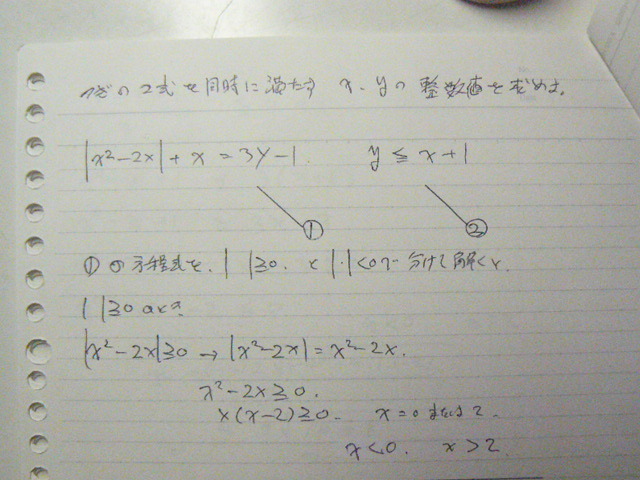 つぎの2式を同時に満たす x、yの整数値を求めよ。
|x²-2x|+x=3y-1 y≦x+1
① ②
①の方程式を、| |≧0. と|・|<0で分けて解くと、
| |≧0のとき
|x²-2x|≧0→|x²-2x|=x²-2x.
x²-2x≧0.
x(x-2)≧0. x=0または2.
x<0. x>2